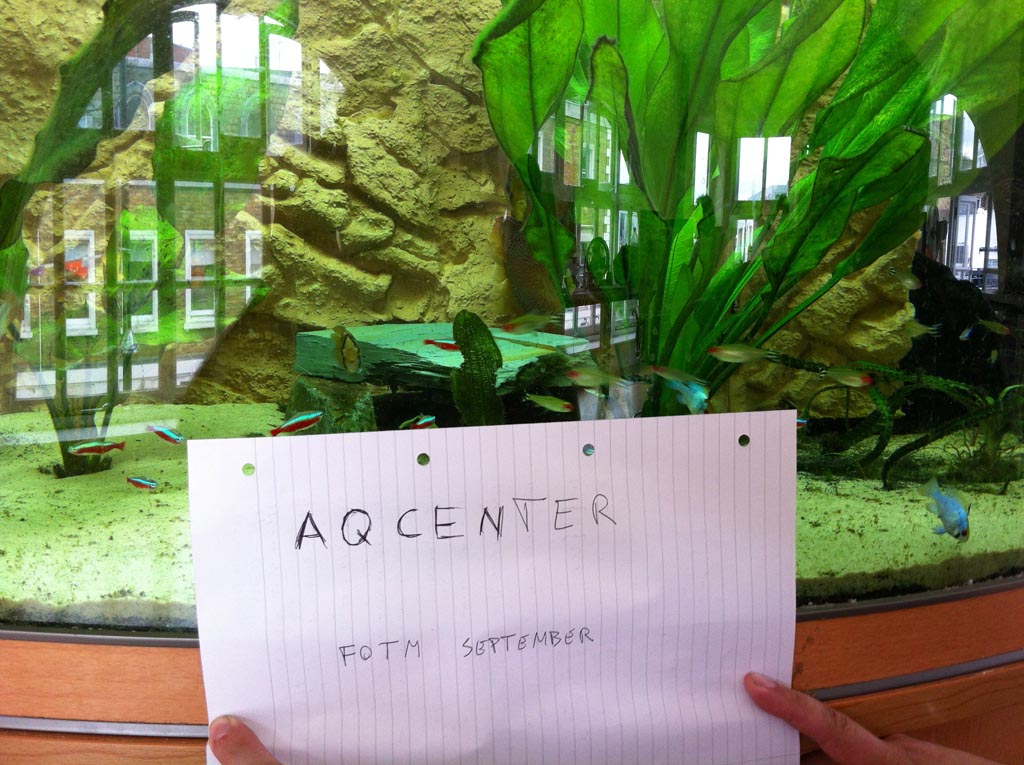 AQCENTER
FOTM SEPTEMBER